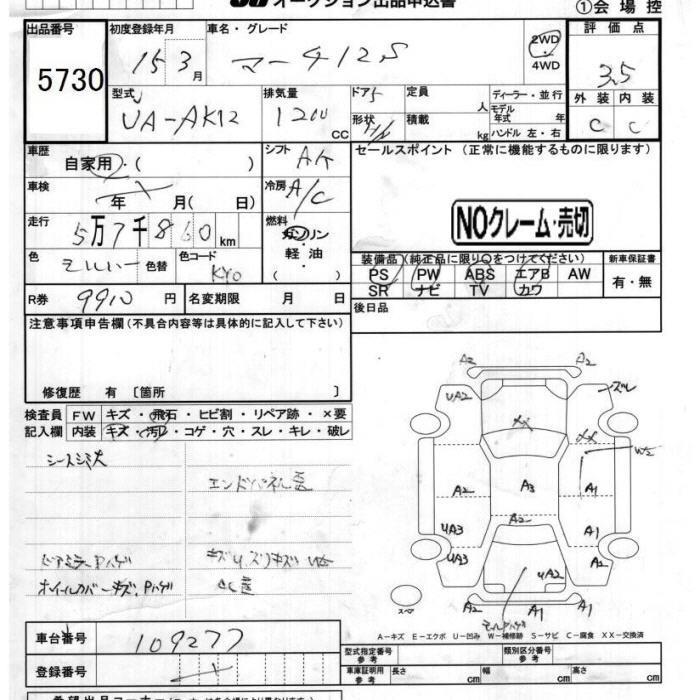 オークション出品申込書
①会場控
出品番号 初度登録年月 車名・グレード 評価点
5730 15 3月 マーチ12S 2WD 4WD 3.5
型式 排気量 ドア 5 定員 人 ディーラー・並行 外装 内装
UA-AK12 1200 CC 形状 H/B 積載 kg モデル年式 年 ハンドル 左・右 C C
車歴 自家用・( ) シフト AT セールスポイント (正常に機能するものに限ります)
車検 年 月( 日) 冷房 A/C
NOクレーム・売切
走行 5万7千860km 燃料 ガソリン・軽油 ( )
色 シルバー 色替 色コード KY0
装備品(純正品に限り○をつけてください) 新車保証書
PS PW ABS エアB AW 有・無
SR ナビ TV カワ
R券 9910円 名変期限 月 日 後日品
注意事項申告欄(不具合内容等は具体的に記入して下さい)
修復歴 有 〔箇所 〕
検査員 FW キズ・飛石・ヒビ割・リペア跡・×要
記入欄 内装 キズ・汚レ・コゲ・穴・スレ・キレ・破レ
シートシミ大
エンドパネル歪
ドアミラーPハゲ
ホイルカバーキズ,Pハゲ
A2 A2
UA2 ズレ
XX XX
W2
A2 A3 A1
A2
UA3 A1
UA3 A2
UA2
A2 A1 A1
スペア
A-キズ E-エクボ U-凹み W-補修跡 S-サビ C-腐食 XX-交換済
車台番号 109277
型式指定番号 参考 類別区分番号 参考
登録番号
車庫証明用 参考 長さ cm 幅 cm 高さ cm